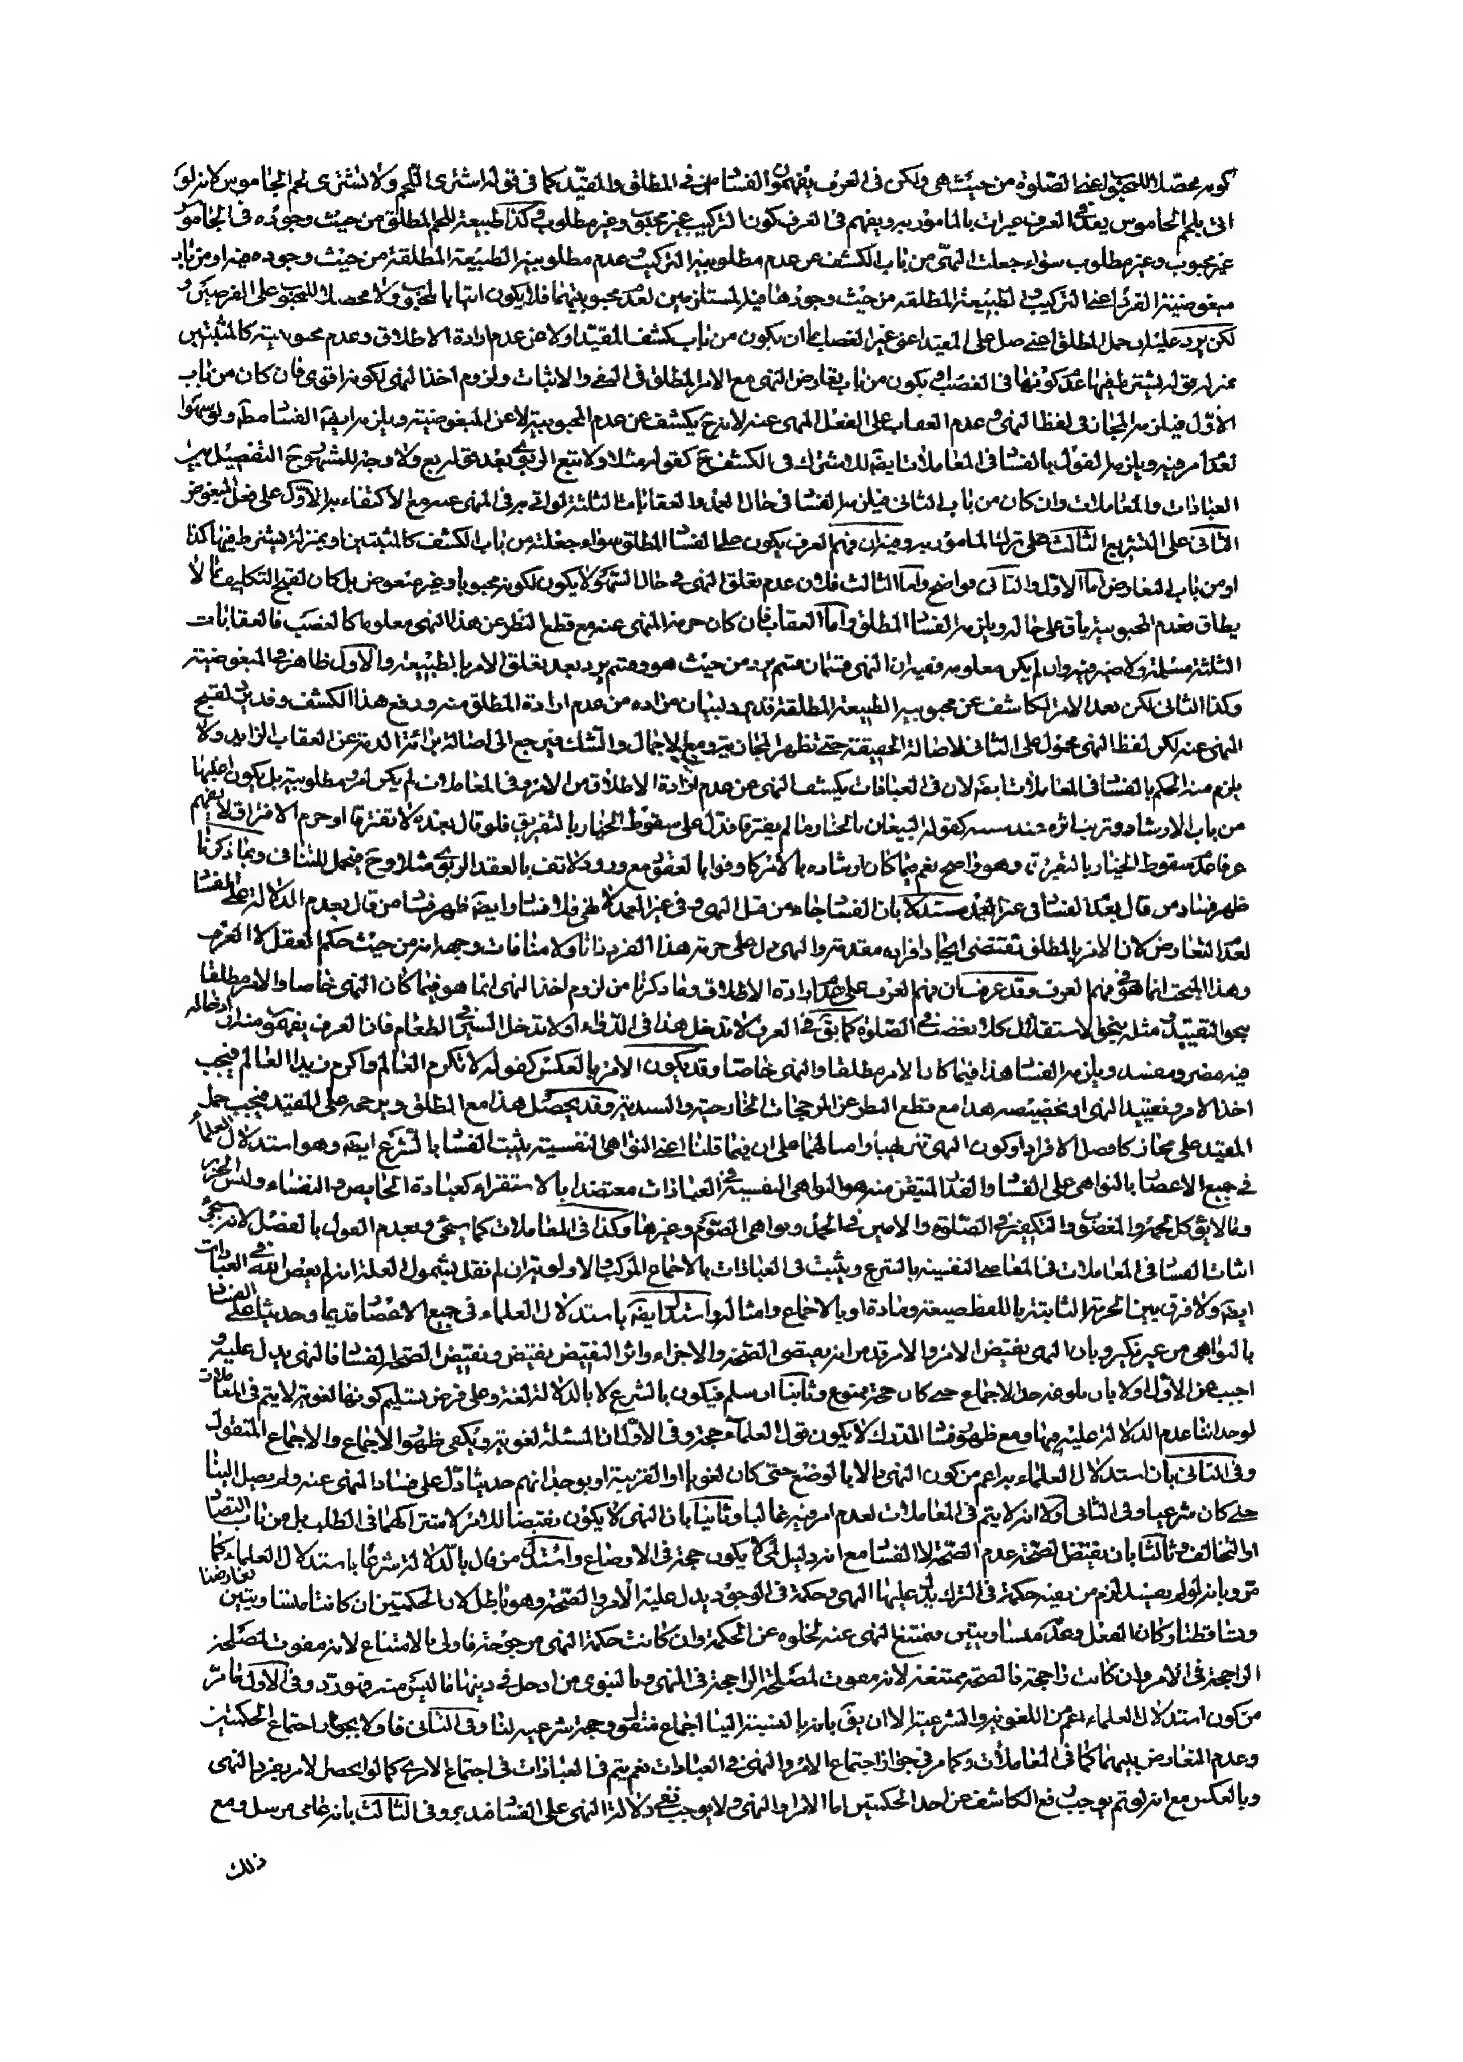 كونه محصلا للمحبوب اعنى الصلوة من حيث هى ولكن فى العرف يفهمون الفساد فى المطلق والمقيد كما فى قوله اشترى اللحم ولا تشترى لحم الجاموس لانه لو
اتى بلحم الجاموس يعد فى العرف غير ات بالمامور به ويفهم فى العرف كون التركيب غير محبوب وغير مطلوب وكذا طبيعة اللحم المطلق من حيث وجوده فى الجاموس
غير محبوب وغير مطلوب سواء جعلت النهى من باب الكشف عن عدم مطلوبية التركيب وعدم مطلوبية الطبيعة المطلقة من حيث وجوده فيه او من باب
مبغوضية الفرد اعنى التركيب والطبيعة المطلقة من حيث وجودها فيه المستلزمين لعدم محبوبيتهما فلا يكون اتيا بالمحبوب ولا محصلا للمحبوب على الفرضين و
لكن يرد عليه ان حمل المطلق اعنى صل على المقيد اعنى غير الغصب اما ان يكون من باب كشف المقيد اولا عن عدم ارادة الاطلاق وعدم محبوبيته كالمثبتين
بمنزلة قوله يشترط فيها عدم كونها فى الغصب او يكون من باب تعارض النهى مع الامر المطلق فى النفى والاثبات ولزوم اخذ النهى لكونه اقوى فان كان من باب
الاول فيلزمه المجاز فى لفظ النهى وعدم العقاب على الفعل المنهى عنه لانه ح يكشف عن عدم المحبوبية لا عن المبغوضية ويلزمه ايضا الفساد مطلقا ولو سهوا
لعدم امر فيه ويلزمه القول بالفساد فى المعاملات ايضا للاشتراك فى الكشف ح كقوله مثلا ولا تبع الربوى بعد قوله بع ولا وجه للمشهور ح التفصيل بين
العبادات والمعاملات وان كان من باب الثانى فيلزمه الفساد فى حال العمد والعقابات الثلثة لواتى به فى المنهى عنه مع الاكتفاء به الاول على فعل المبغوض
الثانى على التشريع الثالث على ترك المامور به وفيه ان فهم العرف يكون على الفساد المطلق سواء جعلته من باب الكشف كالمثبتين او بمنزلة يشترط فيها كذا
او من باب التعارض اما الاول والثانى فواضح واما الثالث فلان عدم تعلق النهى فى حال السهو لا يكون لكونه محبوبا وغير مبغوض بل كان لقبح التكليف بما لا
يطاق فعدم المحبوبية باق على حاله ويلزمه الفساد المطلق واما العقاب فان كان حرمة المنهى عنه مع قطع النظر عن هذا النهى معلوما كالغصب فالعقابات
الثلثة مسلمة ولا ضير فيه وان لم يكن معلومه ففيه ان النهى قسمان قسم يرد من حيث هو وقسم يرد بعد تعلق الامر بالطبيعة والاول ظاهر فى المبغوضية
وكذا الثانى لكن بعد الامر الكاشف عن محبوبية الطبيعة المطلقة قد يرد لبيان مراده من عدم ارادة المطلق منه ورفع هذا الكشف وقد يرد لتقبيح
المنهى عنه لكن لفظ النهى محمول على الثانى لاصالة الحقيقة حتى تظهر المجازية ومع الاجمال والشك فيرجع الى اصالة برائة الذمة عن العقاب الزايد ولا
يلزم منه الحكم بالفساد فى المعاملات ايضا لان فى العبادات يكشف النهى عن عدم ارادة الاطلاق من الامر وفى المعاملات لم يكن امر ومطلوبية بل يكون اعلمها
من باب الارشاد وترتب اثره عند سببه كقوله البيعان بالخيار ما لم يفترقا فدل على سقوط الخيار بالتفريق فلو قال بعده لا تفترقا او حرم الافتراق لا يفهم
عرفا عدم سقوط الخيار بالتفرقة وهو واضح نعم فيما كان ارشاده بالامر كاوفوا بالعقود مع ورود لا تف بالعقد الربوى مثلا وح فيحمل للتنافى وبما ذكرنا
ظهر فساد من قال بعدم الفساد فى غير العمد مستدلا بان الفساد جاء من قبل النهى وفى غير العمد لا نهى فلا فساد وايضا ظهر فساد من قال بعدم الدلالة على الفساد
لعدم التعارض لان الامر بالمطلق يقتضى ايجاد افراده مقدمة والنهى دل على حرمة هذا الفرد ذاتا ولا منافات وجه امره من حيث حكم العقل لا العرف
وهذا المبحث انما هو فى فهم العرف وقد عرفت ان فهم العرف على عدم ارادة الاطلاق وما ذكرنا من لزوم اخذ النهى انما هو فيما كان النهى خاصا والامر مطلقا
بنحو التقييد ومثله بنحو الاستقلال كلا تغصب فى الصلوة كما يق فى العرف لا تدخل هذا فى الدواء او لا تدخل السم فى الطعام فان العرف يفهمون منه ان ادخاله
فيه مضر ومفسد ويلزمه الفساد هذا فيما كان الامر مطلقا والنهى خاصا وقد يكون الامر بالعكس كقوله لا تكرم العالم واكرم زيدا العالم فيجب
اخذ الامر وتقييد النهى او تخصيصه هذا مع قطع النظر عن المرجحات الخارجية والسندية وقد يحصل هذا مع المطلق ويرجحه على المقيد فيجب حمل
المقيد على مجاز كافضل الافراد او كون النهى تنزيهيا وامثالهما على ان فيما قلنا اعنى النواهى النفسية يثبت الفساد بالشرع ايضا وهو استدلال العلماء
فى جميع الاعصار بالنواهى على الفساد والقدر المتيقن منه هو النواهى النفسية فى العبادات معتضدا بالاستقراء كعبادة الحايض والنفساء ولبس الحرير
وما لا يؤكل لحمه والمغصوب والتكفير فى الصلوة والامين فى الحمد ونواهى الصوم وغيرها وكذا فى المعاملات كما سيجئ وبعدم القول بالفصل لانه سيجئ
اثبات الفساد فى المعاملات فى المعاصى النفسية بالشرع ويثبت فى العبادات بالاجماع المركب والاولوية ان لم نقل بشمول العلة انه لم يعص الله فى العبادات
ايضا ولا فرق بين الحرمة الثابتة باللفظ صيغة ومادة او بالاجماع وامثاله واستدل ايضا باستدلال العلماء فى جميع الاعصار قديما وحديثا على الفساد
بالنواهى من غير نكير وبان النهى نقيض الامر والامر قد مر انه يقتضى الصحة والاجزاء واثر النقيض نقيض ونقيض الصحة الفساد فالنهى يدل عليه و
اجيب عن الاول اولا بان بلوغه حد الاجماع حتى كان حجة ممنوع وثانيا ان سلم فيكون بالشرع لا بالدلالة لغة وعلى فرض تسليم كونها لغوية لا يتم فى المعاملات
لوجداننا عدم الدلالة عليه فيها ومع ظهور فساد المدرك لا يكون قول العلماء حجة وفى الاول ان المسئلة لغوية ويكفى ظهور الاجماع والاجماع المنقول
وفى الثانى بان استدلال العلماء به اعم من كون النهى دالا بالوضع حتى كان لغويا او القرينة او بوجدانهم حديثا دل على فساد المنهى عنه ولم يصل الينا
حتى كان شرعيا وفى الثانى اولا انه لا يتم فى المعاملات لعدم امر فيه غالبا وثانيا بان النهى لا يكون نقيضا للامر لاشتراكهما فى الطلب بل من باب التضاد
او التخالف وثالثا بان نقيض الصحة عدم الصحة لا الفساد مع انه دليل لمى لا يكون حجة فى الاوضاع واستدل من قال بالدلالة شرعا باستدلال العلماء كما
مر وبانه لو لم يفسد لزم من نفيه حكمة فى الترك يدل عليها النهى وحكمة فى الوجود يدل عليه الامر والصحة وهو باطل لان الحكمتين ان كانتا متساويتين تعارضتا
وتساقطتا وكان الفعل وعدمه متساويتين فيمتنع النهى عنه لخلوه عن الحكمة وان كانت حكمة النهى مرجوحة فاولى بالامتناع لانه مفوت لمصلحة
الراجحة فى الامر وان كانت راجحة فالصحة ممتنعة لانه مفوت لمصلحة الراجحة فى النهى وبالنبوى من ادخل فى ديننا ما ليس منه فهو رد وفى الاول ما مر
من كون استدلال العلماء اعم من اللغوية والشرعية الا ان يق بانه بالنسبة الينا اجماع منقول وحجة شرعية لنا وفى الثانى فاولا بجواز اجتماع الحكمتين
وعدم التعارض بينهما كما فى المعاملات وكما مر فى جواز اجتماع الامر والنهى فى العبادات نعم يتم فى العبادات فى اجتماع الامرى كما لو لم يحصل الامر بفرد النهى
وبالعكس مع انه لو تم يوجب رفع الكاشف عن احد الحكمتين اما الامر او النهى ولا يوجب نفى دلالة النهى على الفساد فتدبر وفى الثالث بانه عامى مرسل ومع
ذلك